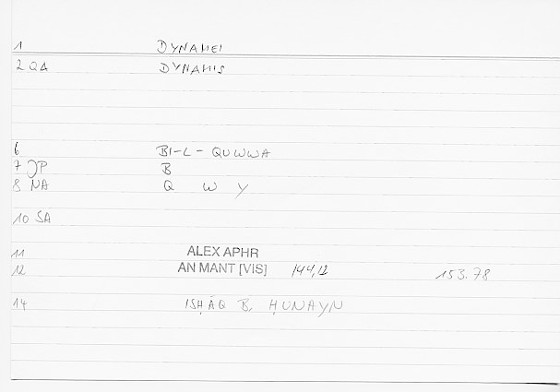 1 DYNAMEI
2 QA DYNAMIS
6 BI-L-QUWWA
7 JP B
8 NA Q W Y
10 SA
11 ALEX APHR
12 AN MANT [VIS] 144,12 153.78
14 ISḤĀQ B. ḤUNAYN